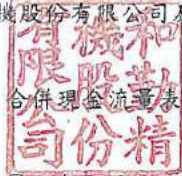 機股份有限公司
合併現金流量表
和勤精
機股份
有限公司